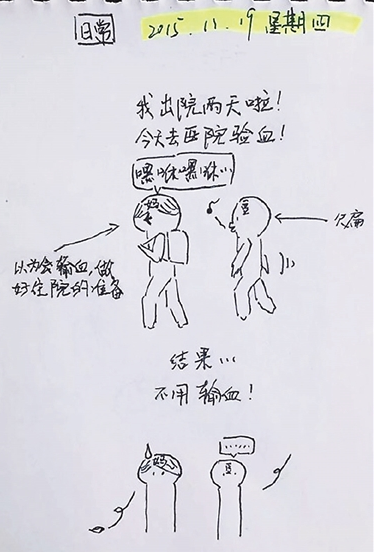 日常
2015.11.19 星期四
我出院两天啦!
今天去医院验血!
嘿咻嘿咻…
妈
豆
欠扁
以为会输血,做
好住院的准备
结果…
不用输血!
妈
……
豆